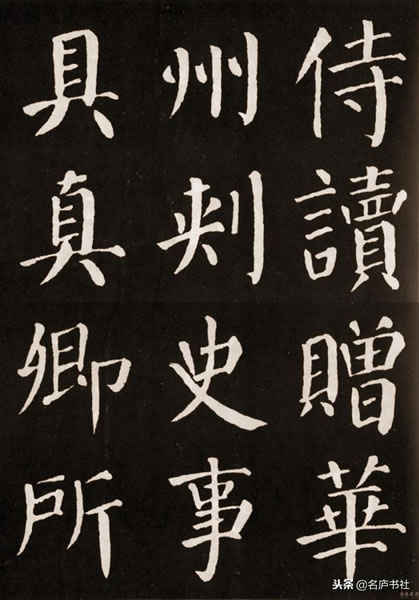 侍讀贈華
州刺史事
具真卿所
头条@名庐书社